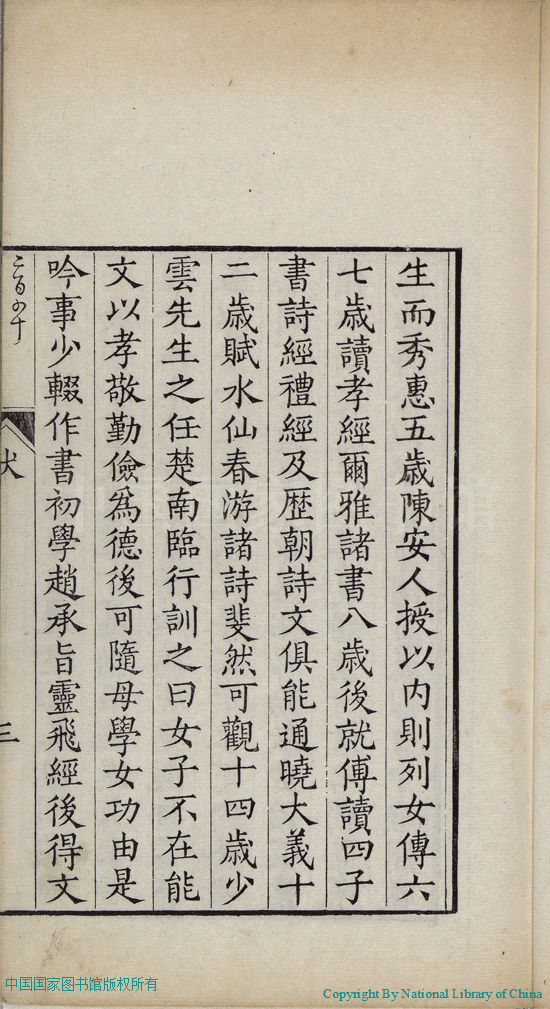 生而秀惠五歳陳安人授以内則列女傳六
七歳讀孝經爾雅諸書八歳後就傅讀四子
書詩經禮經及歴朝詩文俱能通曉大義十
二歳賦水仙春游諸詩斐然可觀十四歳少
雲先生之任楚南臨行訓之曰女子不在能
文以孝敬勤儉爲德後可隨母學女功由是
吟事少輟作書初學趙承旨靈飛經後得文
三
中国国家图书馆版权所有
Copyright By National Library of China